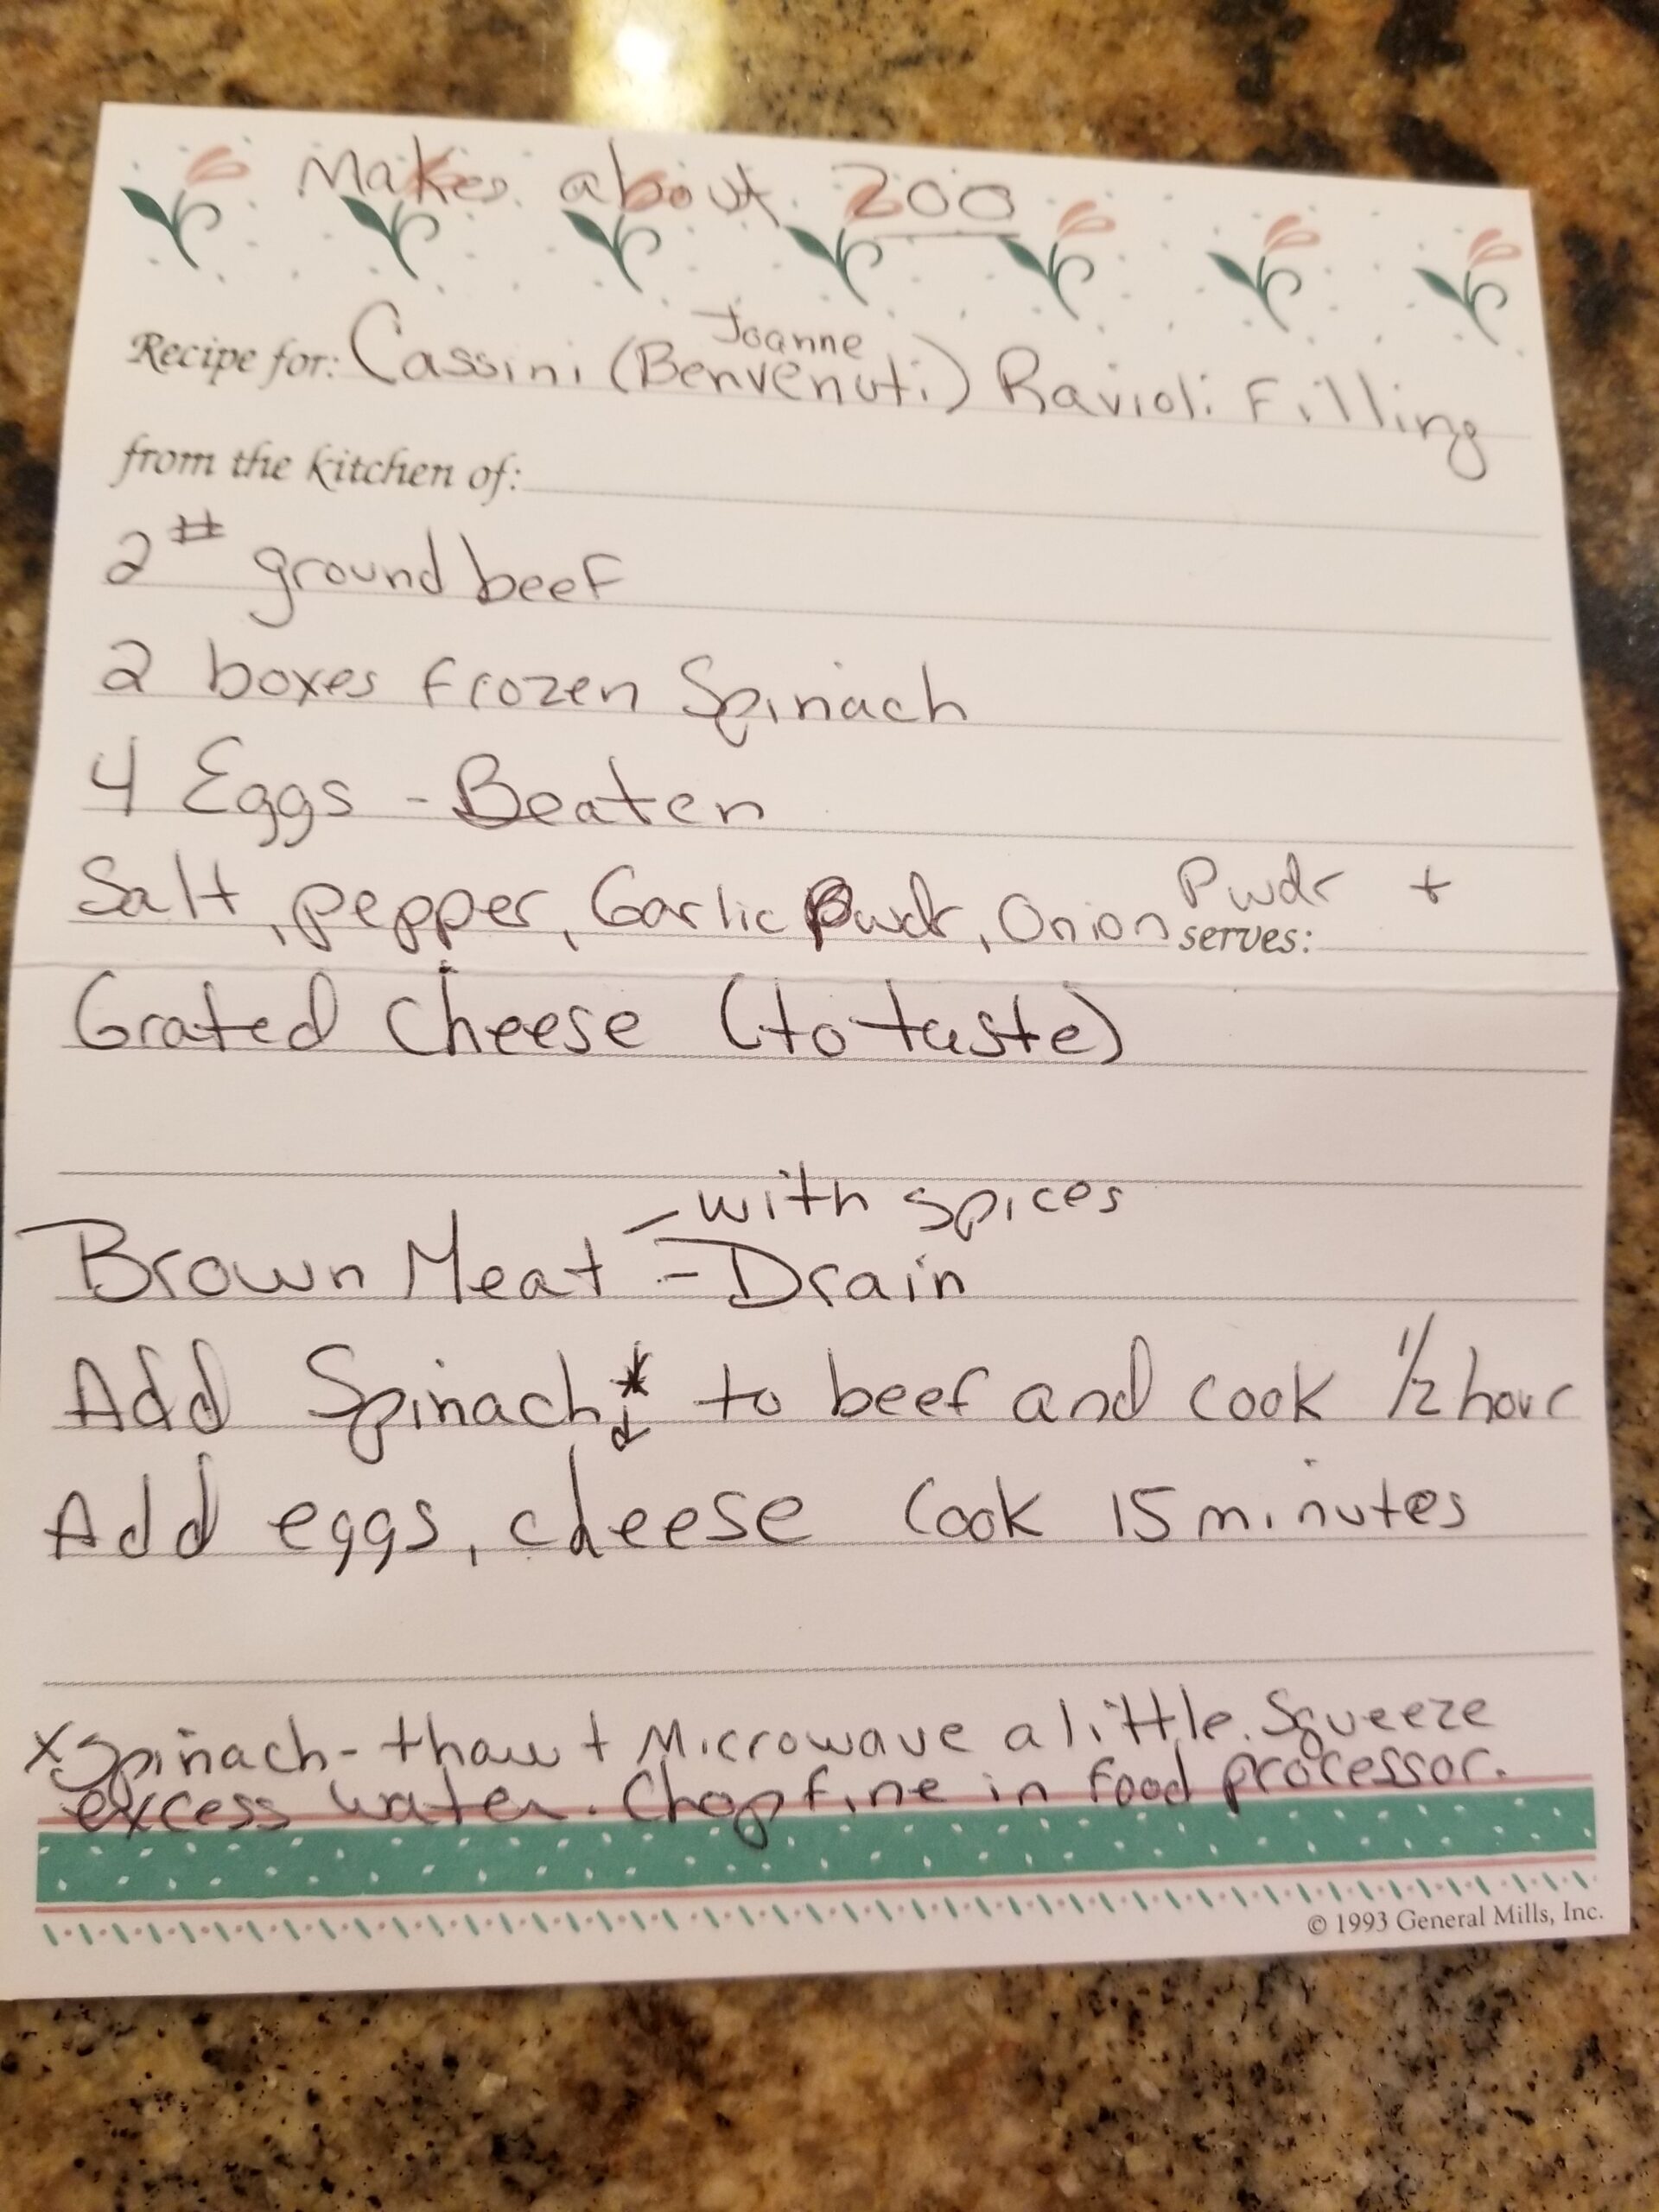 Makes about 200
Joanne
Recipe for: Cassini (Benvenuti) Ravioli Filling
from the kitchen of:
2# ground beef
2 boxes frozen Spinach
4 Eggs - Beaten
Salt, pepper, Garlic Pwdr, Onion Pwdr +
serves:
Grated Cheese (to taste)
- with spices
Brown Meat - Drain
Add Spinach* to beef and cook 1/2 hour
Add eggs, cheese Cook 15 minutes
x Spinach - thaw + Microwave a little. Squeeze
excess water. Chop fine in food processor.
© 1993 General Mills, Inc.